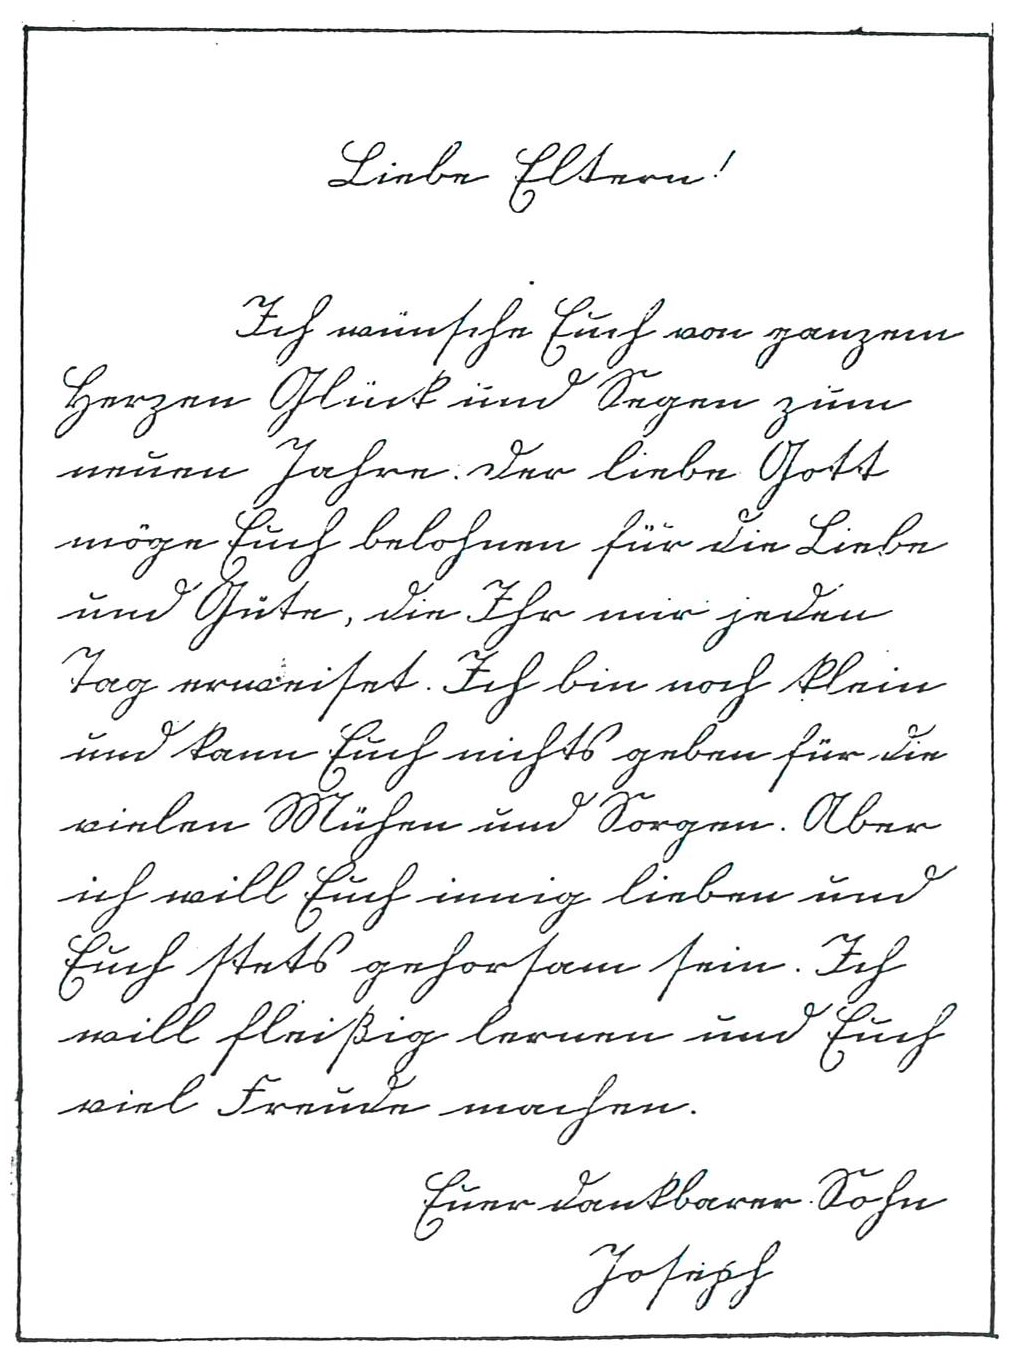 Liebe Eltern!
Ich wünsche Euch von ganzem
Herzen Glück und Segen zum
neuen Jahre. Der liebe Gott
möge Euch belohnen für die Liebe
und Güte, die Ihr mir jeden
Tag erweiset. Ich bin noch klein
und kann Euch nichts geben für die
vielen Mühen und Sorgen. Aber
ich will Euch innig lieben und
Euch stets gehorsam sein. Ich
will fleißig lernen und Euch
viel Freude machen.
Euer dankbarer Sohn
Joseph